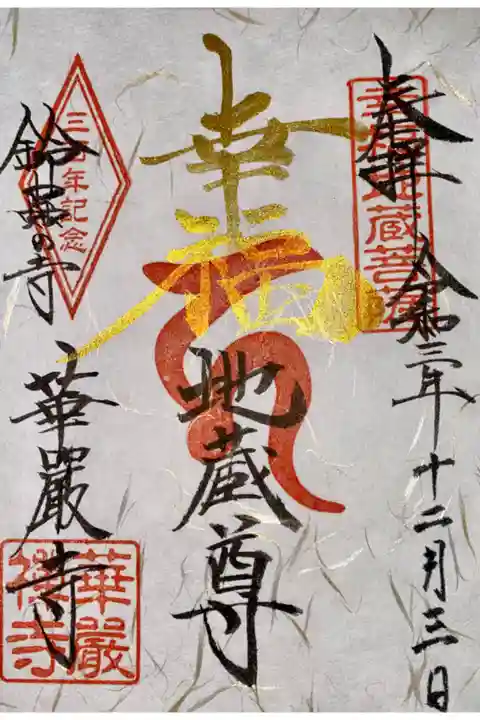 奉拝
令和三年十二月三日
幸福地蔵菩薩
幸福
地蔵尊
三百年記念
鈴蟲の寺
華嚴寺
華嚴禅寺